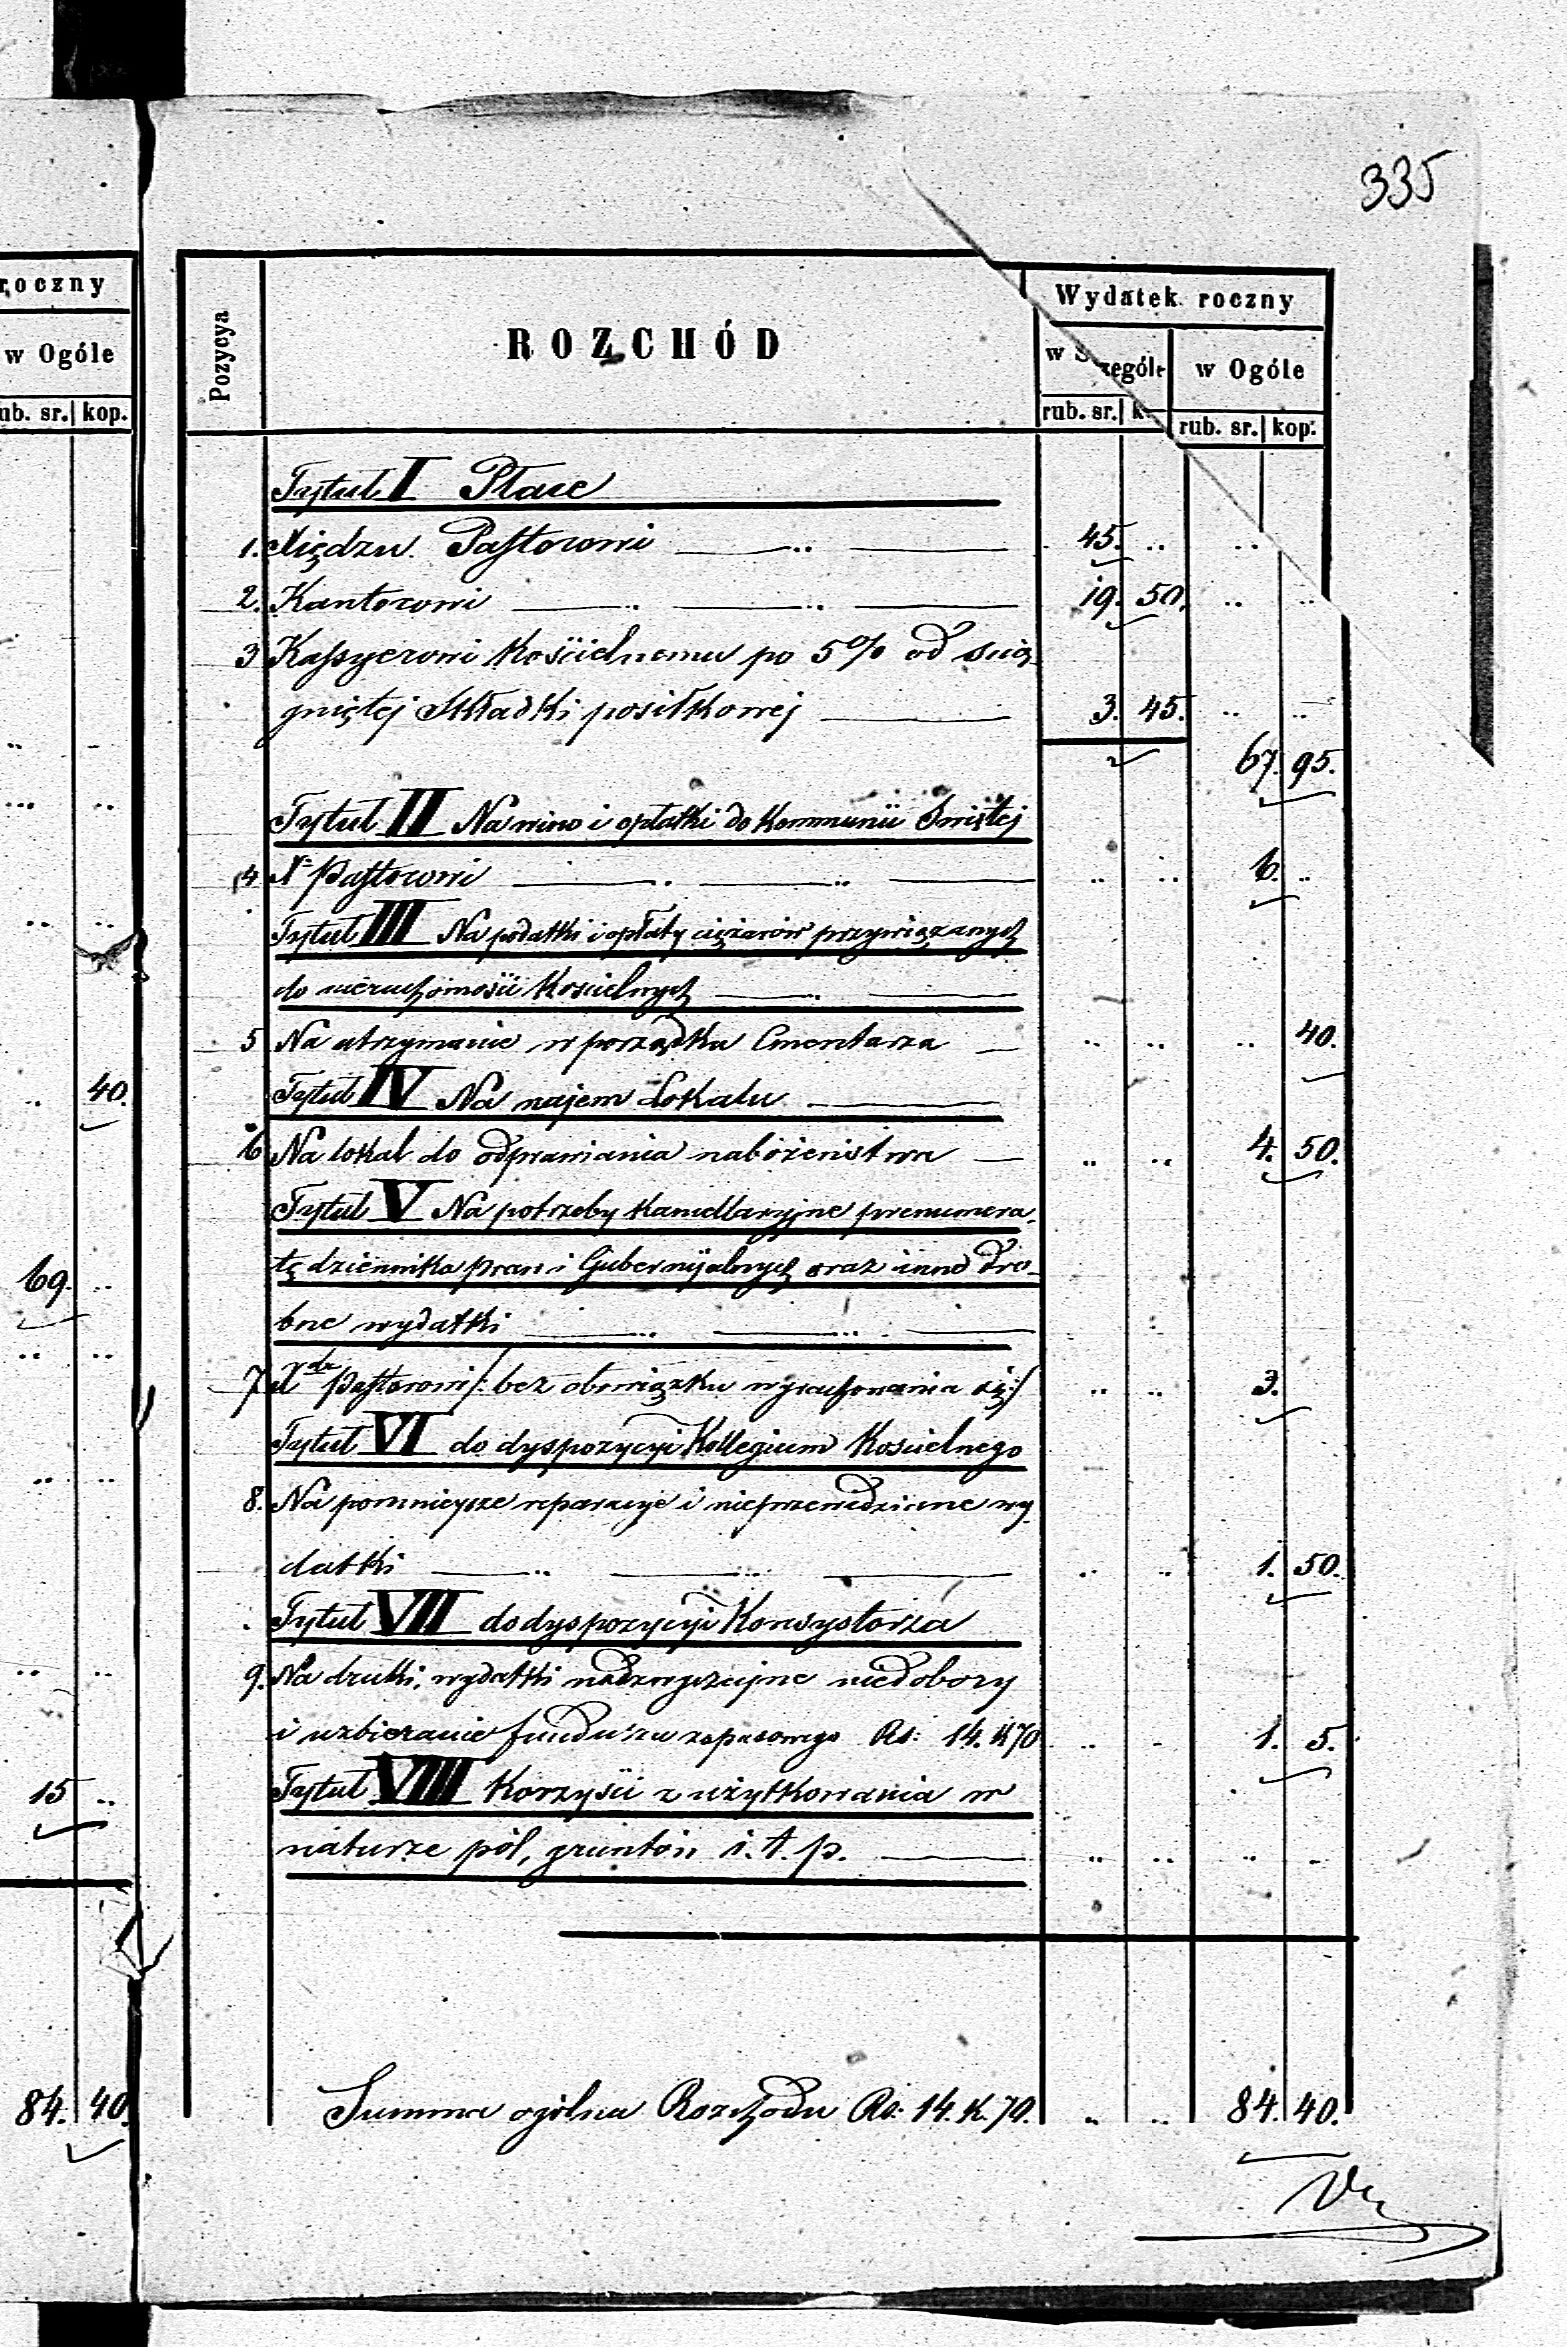 335
roczny
w Ogóle
ub. sr. kop.
40.
69.
15
84. 40.
Pozycya
ROZCHÓD
Wydatek roczny
w Szczególe w Ogóle
rub. sr. k. rub. sr. kop.
Tytuł I Płace
1. Xiędzu Pastorowi 45.
2. Kantorowi 19. 50.
3 Kassyerowi Kościelnemu po 5% od ścią-
gniętej Składki posiłkowej 3. 45.
67. 95.
Tytuł II Na wino i opłatki do Kommunii Swiętej
4 Pastorowi 6.
Tytuł III Na podatki i opłaty ciężarów przywiązanych
do nieruchomości Kościelnych
5 Na utrzymanie w porządku Cmentarza 40.
Tytuł IV Na najem Lokalu
6 Na lokal do odprawiania nabożeństwa 4. 50.
Tytuł V Na potrzeby Kancellaryjne prenumera-
tę dziennika praw i Gubernijalnych oraz inne dro-
bne wydatki
7 Xdzu Pastorowi /: bez obowiązku wyrachowania się :/ 3.
Tytuł VI do dyspozycyi Kollegium Kościelnego
8. Na pomniejsze reparacye i nieprzewidziane wy-
datki 1. 50.
Tytuł VII do dyspozycyi Konsystorza
9. Na druki, wydatki nadzwyczajne niedobory
i uzbieranie funduszu zapasowego Rs: 14. K 70 1. 5.
Tytuł VIII Korzyści z użytkowania w
naturze pól, gruntów i. t. p.
Summa ogólna Rozchodu Rs: 14. K. 70. 84. 40.